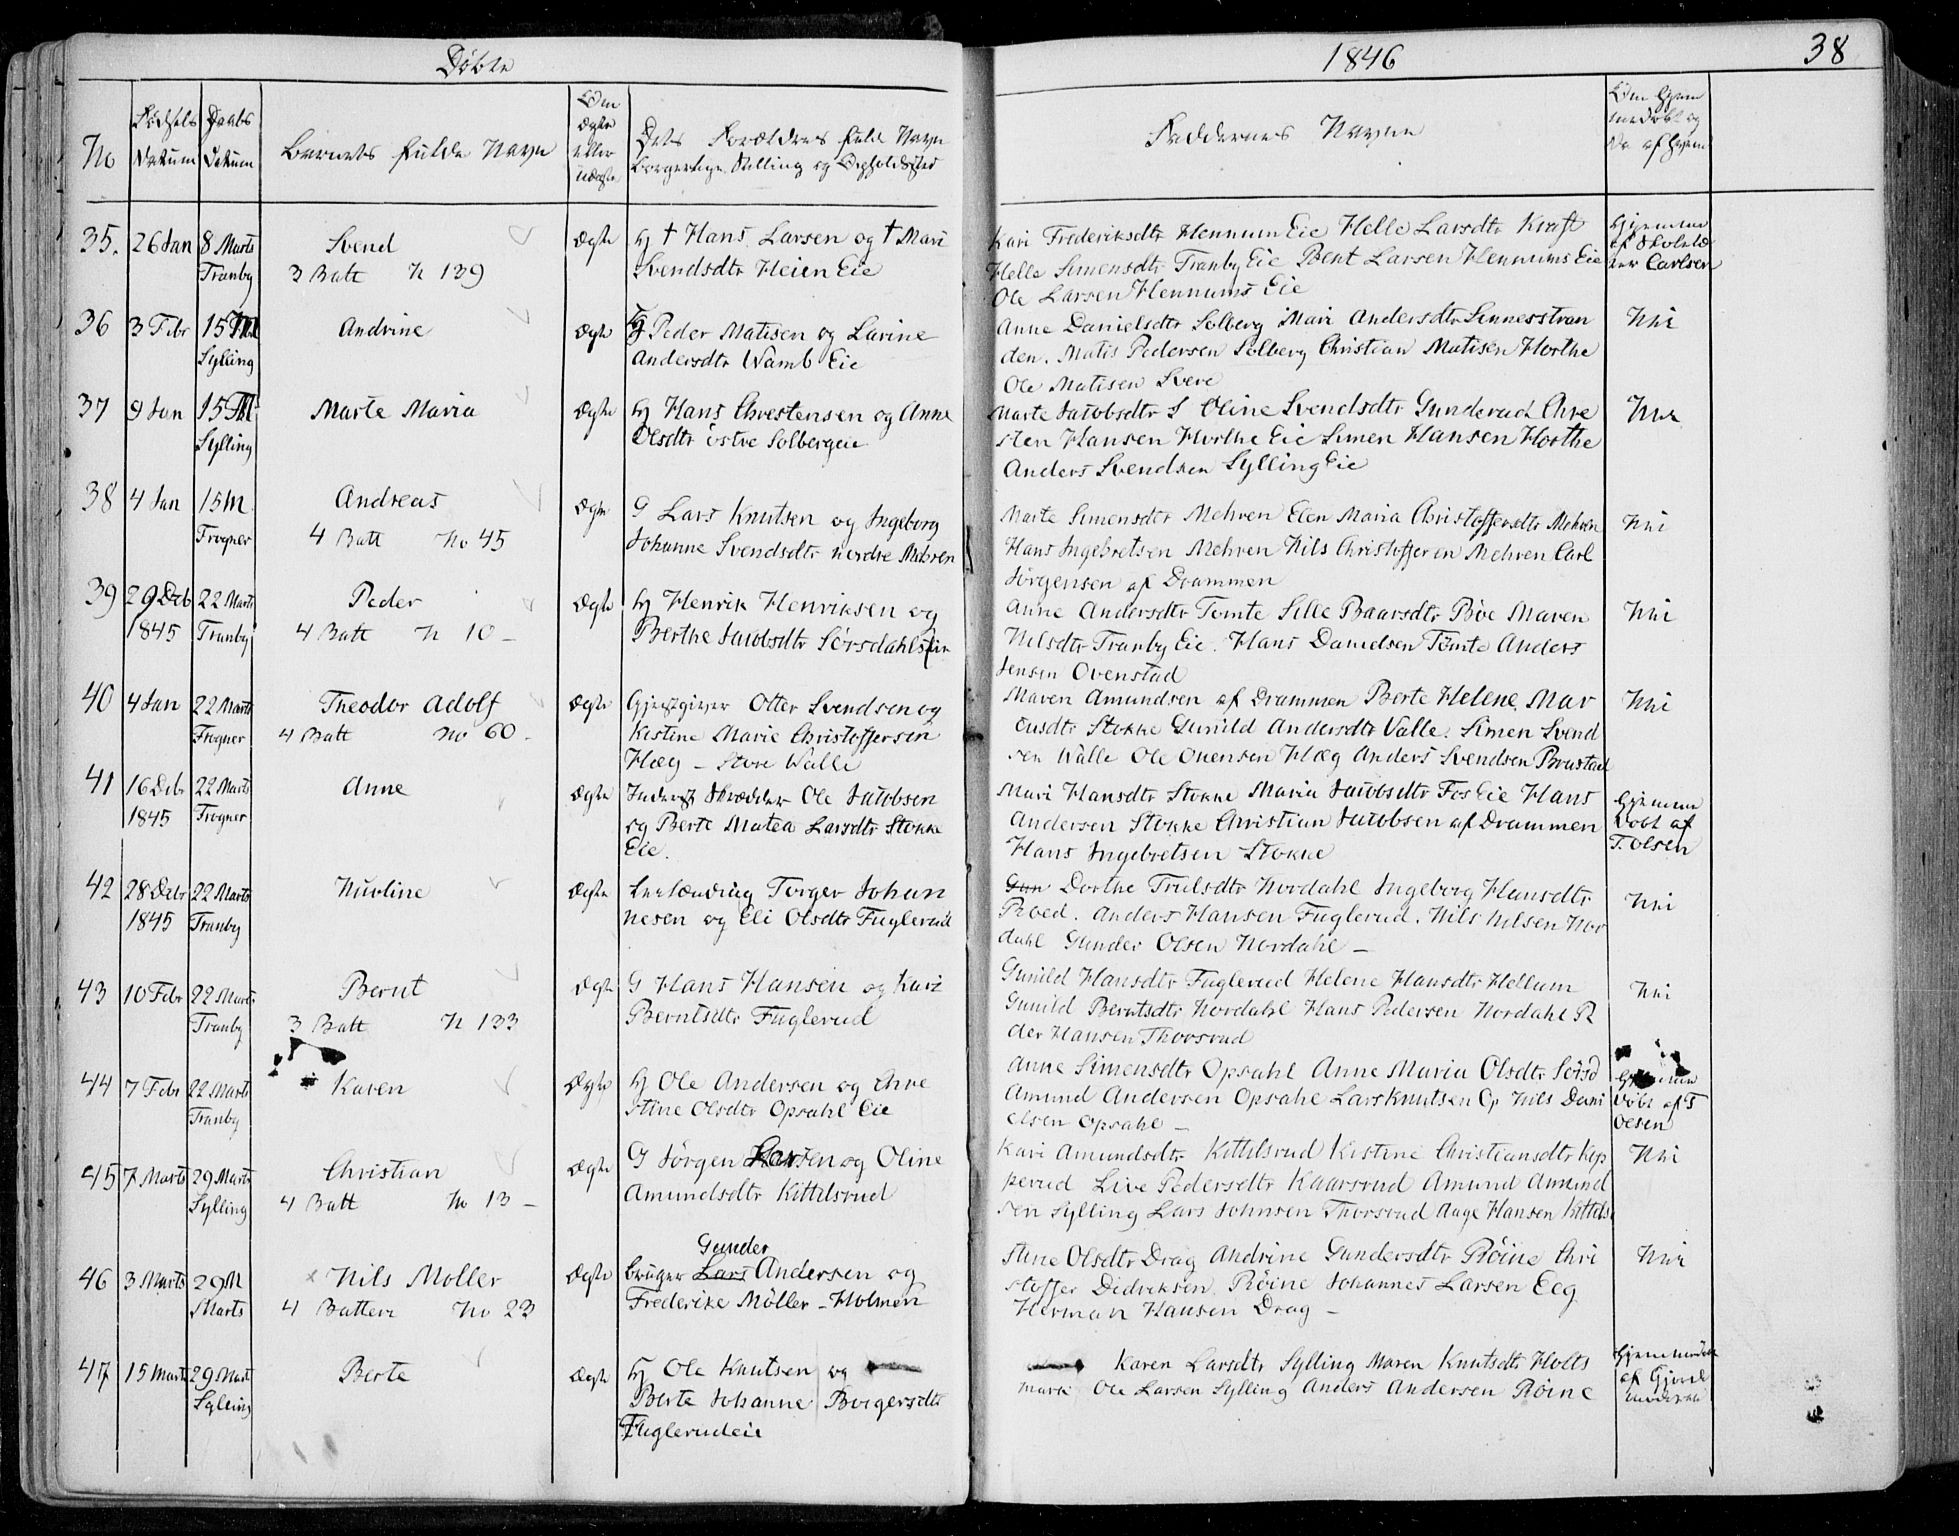 Døbte
1846
38
No
Fødsels Datum
Daabs Datum
Barnets fulde Navn
Om ægte eller uægte
Dets Forældres fulde Navn
borgerlige Stilling og Opholdssted
Faddernes Navne
Om hjemmedøbt og
35. 26 Jan 8 Marts Tranby
Svend
3 Batt N 139
ægte
Hj † Hans Larsen og † Mari
Svendsdtr Heien Eie
Kari Frederiksdtr Hennum Eie Helle Larsdtr Kraft
Helle Simensdtr Tranby Eie Bent Larsen Hennums Eie
Ole Larsen Hennums Eie
Hjemme
af Skolelæ
rer Carlsen
36 3 Febr 15 M Sylling
Andrine
ægte
Peder Matisen og Lavine
Andersdtr Wamb Eie
Anne Danielsdtr Solberg Mari Andersdtr Linnesstran
den. Matis Pedersen Solberg Christian Matisen Horthe
Ole Matisen Svere
Nei
37 9 Jan 15 M Sylling
Marte Maria
ægte
Hj Hans Chrestensen og Anne
Olsdtr østre Solbergeie
Marte Jacobsdtr S Oline Svendsdtr Gunderud Chre
sten Hansen Horthe Eie Simen Hansen Horthe
Anders Svendsen Sylling Eie
Nei
38 4 Jan 15 M Frogner
Andreas
4 Batt No 45
ægte
G Lars Knutsen og Ingeborg
Johanne Svendsdtr nordre Mehren
Marte Simensdtr Mehren Elen Maria Christoffersdtr Mehren
Hans Ingebretsen Mehren Nils Christoffersen Mehren Carl
Jørgensen af Drammen
Nei
39 29 Deb 1845 22 Marts Tranby
Peder
4 Batt N 10 –
ægte
Hj Henrik Henriksen og
Berthe Jacobsdtr Sørsdahlseie
Anne Andersdtr Tomte Sille Baarsdtr Bøe Maren
Nilsdtr Tranby Eie. Hans Danielsen Tømte Anders
Jensen Ovenstad
Nei
40 4 Jan 22 Marts Frogner
Theodor Adolf
4 Batt No 60.
ægte
Gjestgiver Otter Svendsen og
Kistine Marie Christoffersen
Hæg – Store Walle
Maren Amundsen af Drammen Berte Helene Mar
cusdtr Stokke Gunild Andersdtr Valle. Simen Svend
sen Walle Ole Ouensen Hæg Anders Svendsen Brustad
Nei
41 16 Debr 1845 22 Marts Frogner
Anne
ægte
Inderst Skrædder Ole Jacobsen
og Berte Matea Larsdtr Stokke
Eie.
Mari Hansdtr Stokke Maria Jacobsdtr Fos Eie Hans
Andersen Stokke Christian Jacobsen af Drammen
Hans Ingebretsen Stokke
Hjemme
Døbt af
T. Olsen
42 28 Debr 1845 22 Marts Tranby
Nicoline
ægte
Leilænding Torger Johan
nesen og Eli Olsdtr Fuglerud
Gun Dorthe Trulsdtr Nordahl Ingeborg Hansdtr
Roed. Anders Hansen Fuglerud. Nils Nilsen Nor
dahl Gunder Olsen Nordahl –
Nei
43 10 Febr 22 Marts Tranby
Bernt
3 Batt N 133
ægte
G Hans Hansen og Kari
Berntsdtr Fuglerud
Gunild Hansdtr Fuglerud Helene Hansdtr Hellum
Gunild Berntsdtr Nordahl Hans Pedersen Nordahl Pe
der Hansen Thorsrud
Nei
44 7 Febr 22 Marts Tranby
Karen
ægte
Hj Ole Andersen og Chre
stine Olsdtr Opsahl Eie
Anne Simensdtr Opsahl Anne Maria Olsdtr Sørsd
Amund Andersen Opsahl Lars Knutsen Op Nils Dani
elsen Opsahl –
Hjemme
Døbt af T
Olsen
45 7 Marts 29 Marts Sylling
Christian
4 Batt No 13 –
ægte
G Jørgen Larsen og Oline
Amundsdtr Kittilsrud
Kari Amundsdtr Kittilsrud Kistine Christiansdtr Kop
perud Live Pedersdtr Kaarsrud Amund Amund
sen Sylling Lars Johnsen Thorsrud Aage Hansen Kittils
Nei
46 3 Marts 29 M Marts
Nils Møller
4 Batteri No 23
ægte
Gunder
bruger Lars Andersen og
Frederike Møller – Holmen
Stine Olsdtr Drag Andrine Gundersdtr Røine Chri
stoffer Didriksen Røine Johannes Larsen Eeg
Herman Hansen Drag –
Nei
47 15 Marts 29 Mart Sylling
Berte
ægte
Hj Ole Knutsen og
Berte Johanne Borgersdtr
Fuglerudeie
Karen Larsdtr Sylling Maren Knutsdtr Holts
mark Ole Larsen Sylling Anders Andersen Røine
Hjemmedøbt
af Gjord
moderen